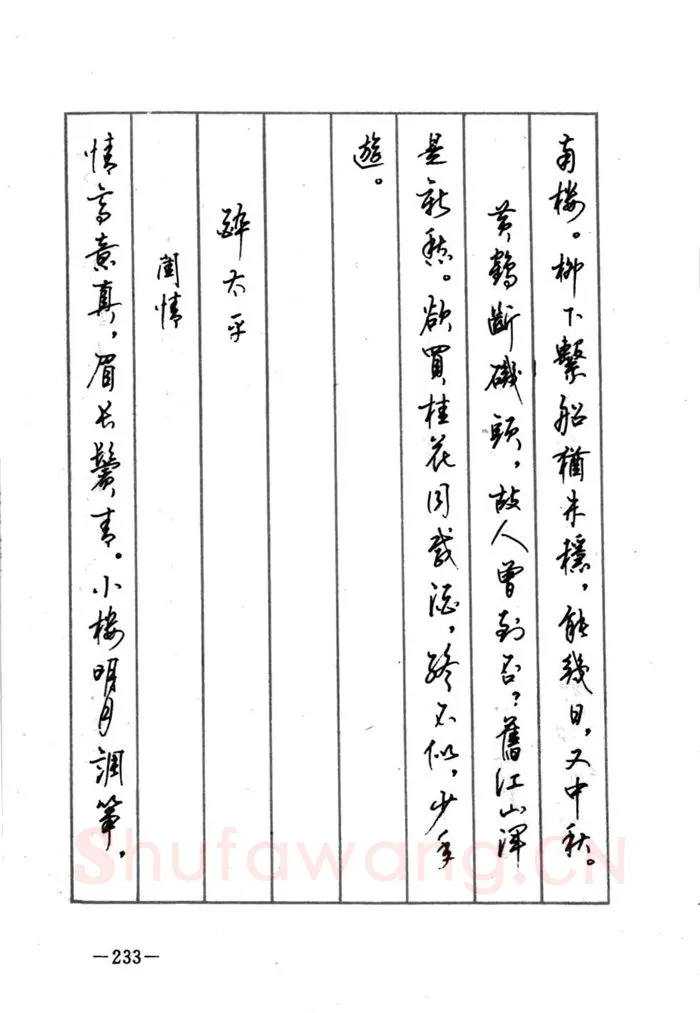 南樓。柳下繫船猶未穩，能幾日，又中秋。
黄鶴斷磯頭，故人曾到否？舊江山渾
是新愁。欲買桂花同載酒，終不似，少年
遊。
醉太平
閨情
情高意真，眉长鬢青。小樓明月調箏，
Shufawang.CN
—233—